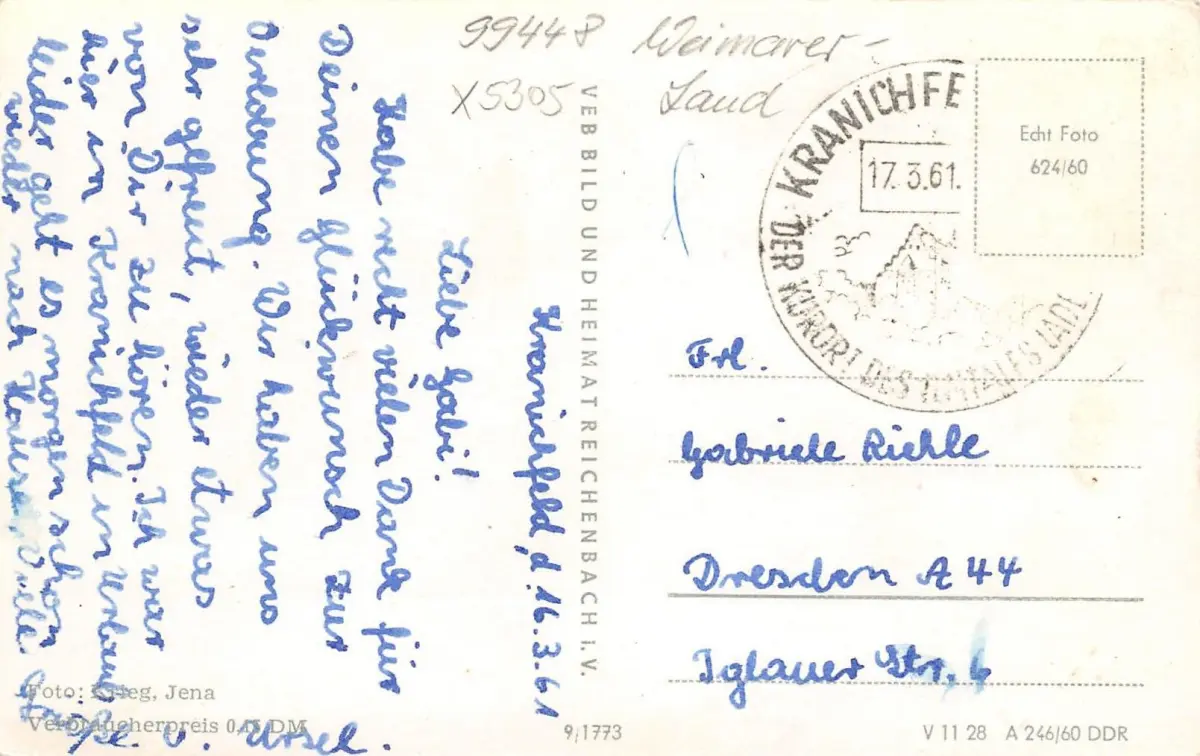 99448
X5305
Weimarer-
Land
Kranichfeld, d. 16.3.61
Liebe Gabi!
Habe recht vielen Dank für
Deinen Glückwunsch zur
Verlobung. Wir haben uns
sehr gefreut, wieder etwas
von Dir zu hören. Ich war
hier in Kranichfeld in Urlaub
leider geht es morgen schon
wieder nach Hause. Viele
Grüße v. Ursel.
Foto: Krieg, Jena
Verbraucherpreis 0,15 DM
VEB BILD UND HEIMAT REICHENBACH I. V.
9/1773
KRANICHFE
17.3.61.
DER KURORT DES ILMTALES LADE
Echt Foto
624/60
Frl.
Gabriele Riehle
Dresden A 44
Iglauer Str. 6
V 11 28 A 246/60 DDR